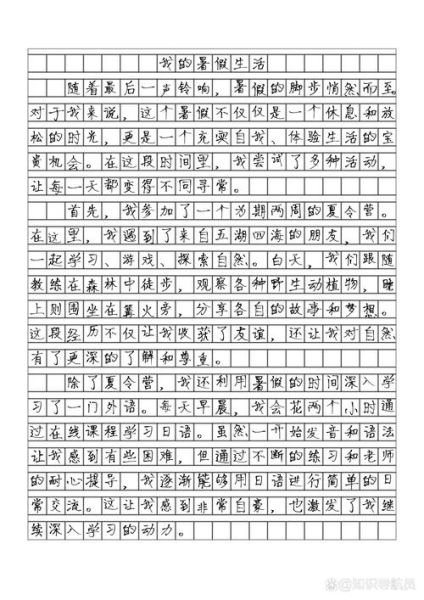 我的暑假生活
随着最后一声铃响，暑假的脚步悄然而至。
对于我来说，这个暑假不仅仅是一个休息和放
松的时光，更是一个充实自我、体验生活的宝
贵机会。在这段时间里，我尝试了多种活动，
让每一天都变得不同寻常。
首先，我参加了一个为期两周的夏令营。
在这里，我遇到了来自五湖四海的朋友，我们
一起学习、游戏、探索自然。白天，我们跟随
教练在森林中徒步，观察各种野生动植物，晚
上则围坐在篝火旁，分享各自的故事和梦想。
这段经历不仅让我收获了友谊，还让我对自然
有了更深的了解和尊重。
除了夏令营，我还利用暑假的时间深入学
习了一门外语。每天早晨，我会花两个小时通
过在线课程学习日语。虽然一开始发音和语法
让我感到有些困难，但通过不断的练习和老师
的耐心指导，我逐渐能够用日语进行简单的日
常交流。这让我感到非常自豪，也激发了我继
续深入学习的动力。
@知识导航员